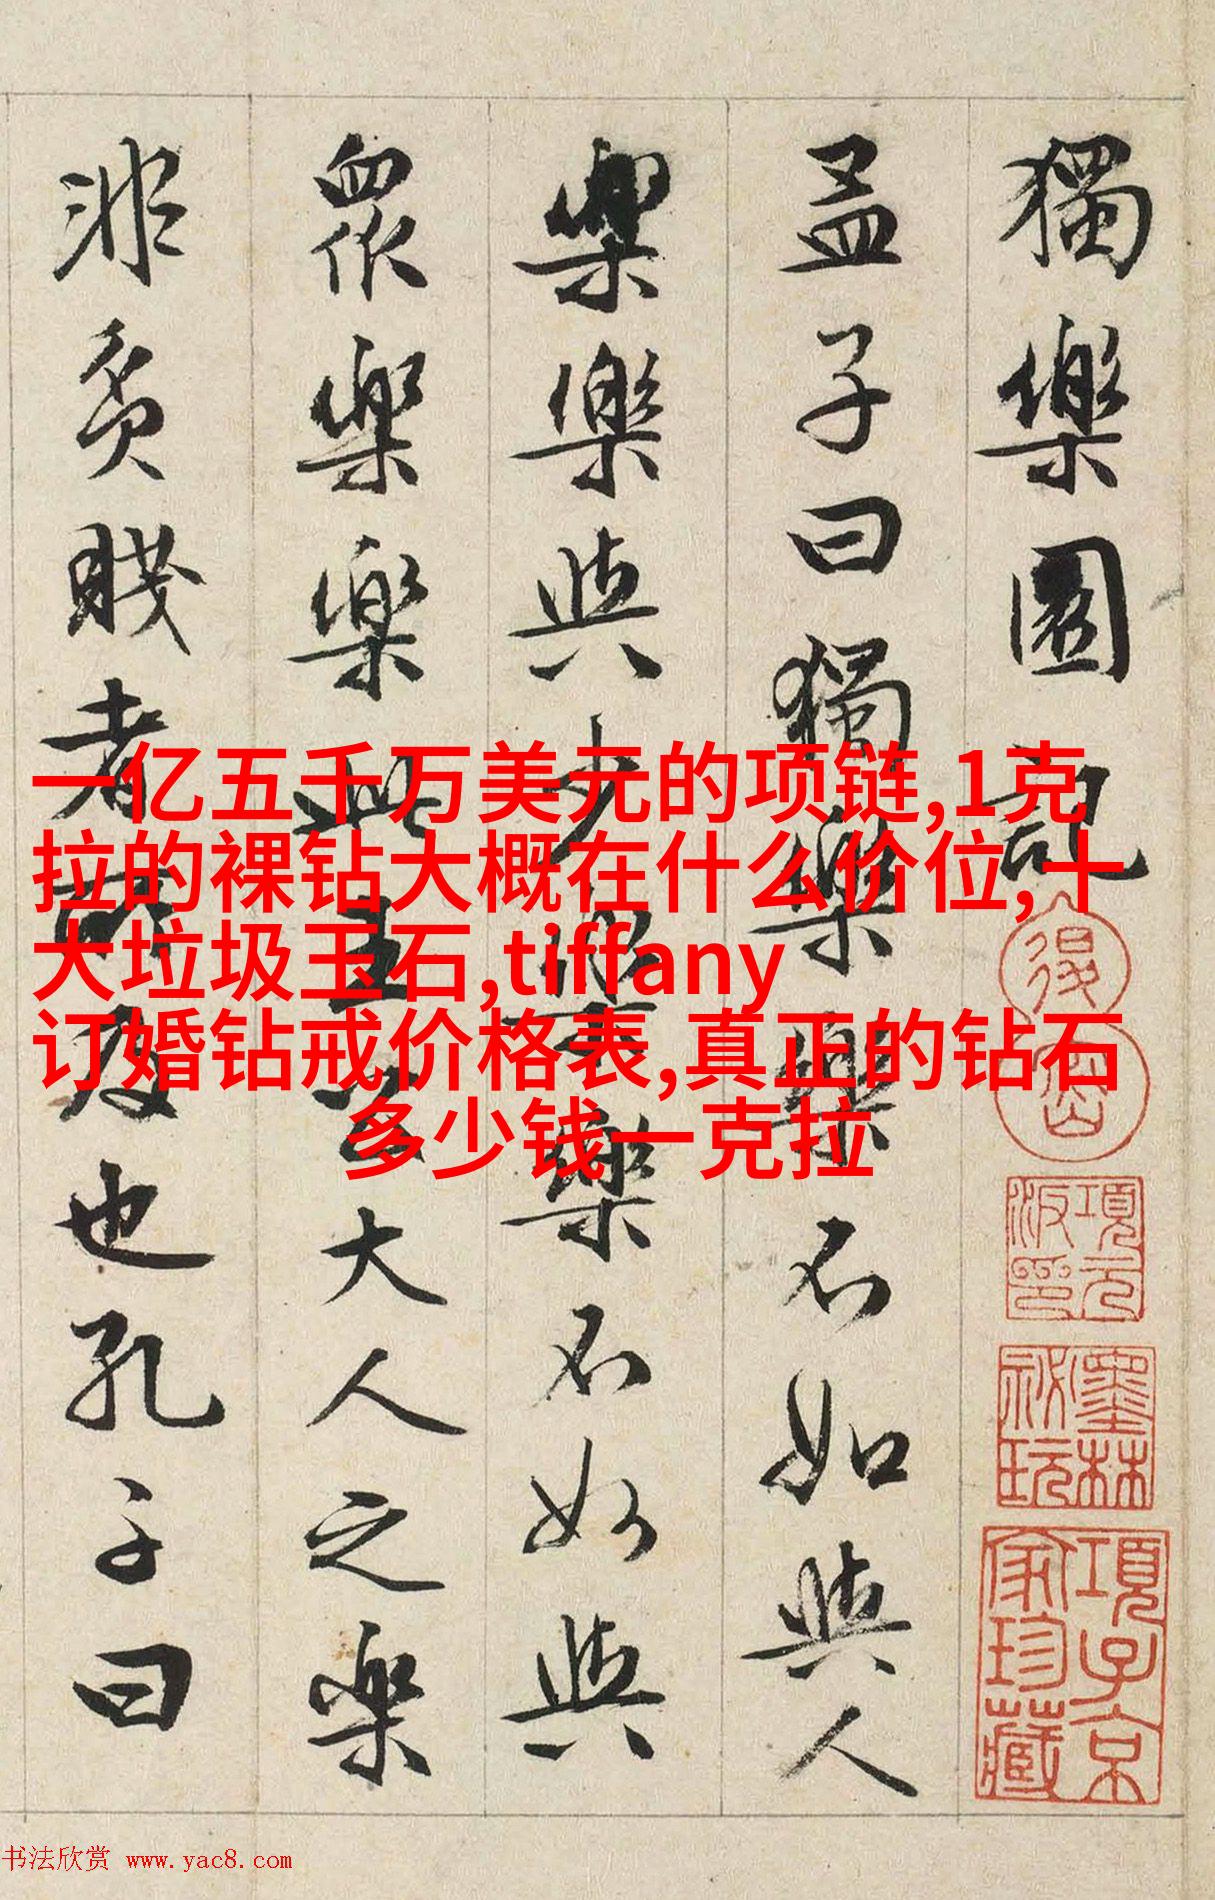 獨樂園記
孟子曰獨樂樂不如與人
樂樂與少樂樂不如與
眾樂樂此王公大人之樂
非貧賤者所及也孔子曰
一亿五千万美元的项链,1克
拉的裸钻大概在什么价位,十
大垃圾玉石,tiffany
订婚钻戒价格表,真正的钻石
多少钱一克拉
項元
汴印
墨林
秘玩
項子京
家珍藏
书法欣赏 www.yac8.com